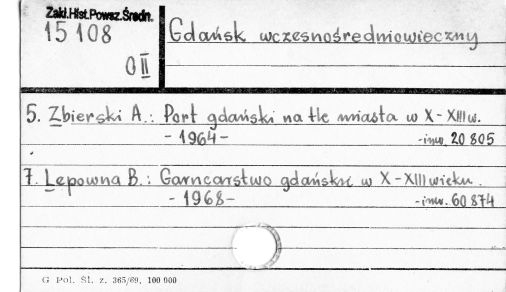 Zakł.Hist.Powsz.Średn.
15 108
O II
Gdańsk wczesnośredniowieczny
5. Zbierski A.: Port gdański na tle miasta w X-XIII w.
- 1964 - -inw. 20 805
7. Lepowna B.: Garncarstwo gdańskie w X-XIII wieku.
- 1968 - -inw. 60 874
G Pol. Śl. z. 365/69, 100 000